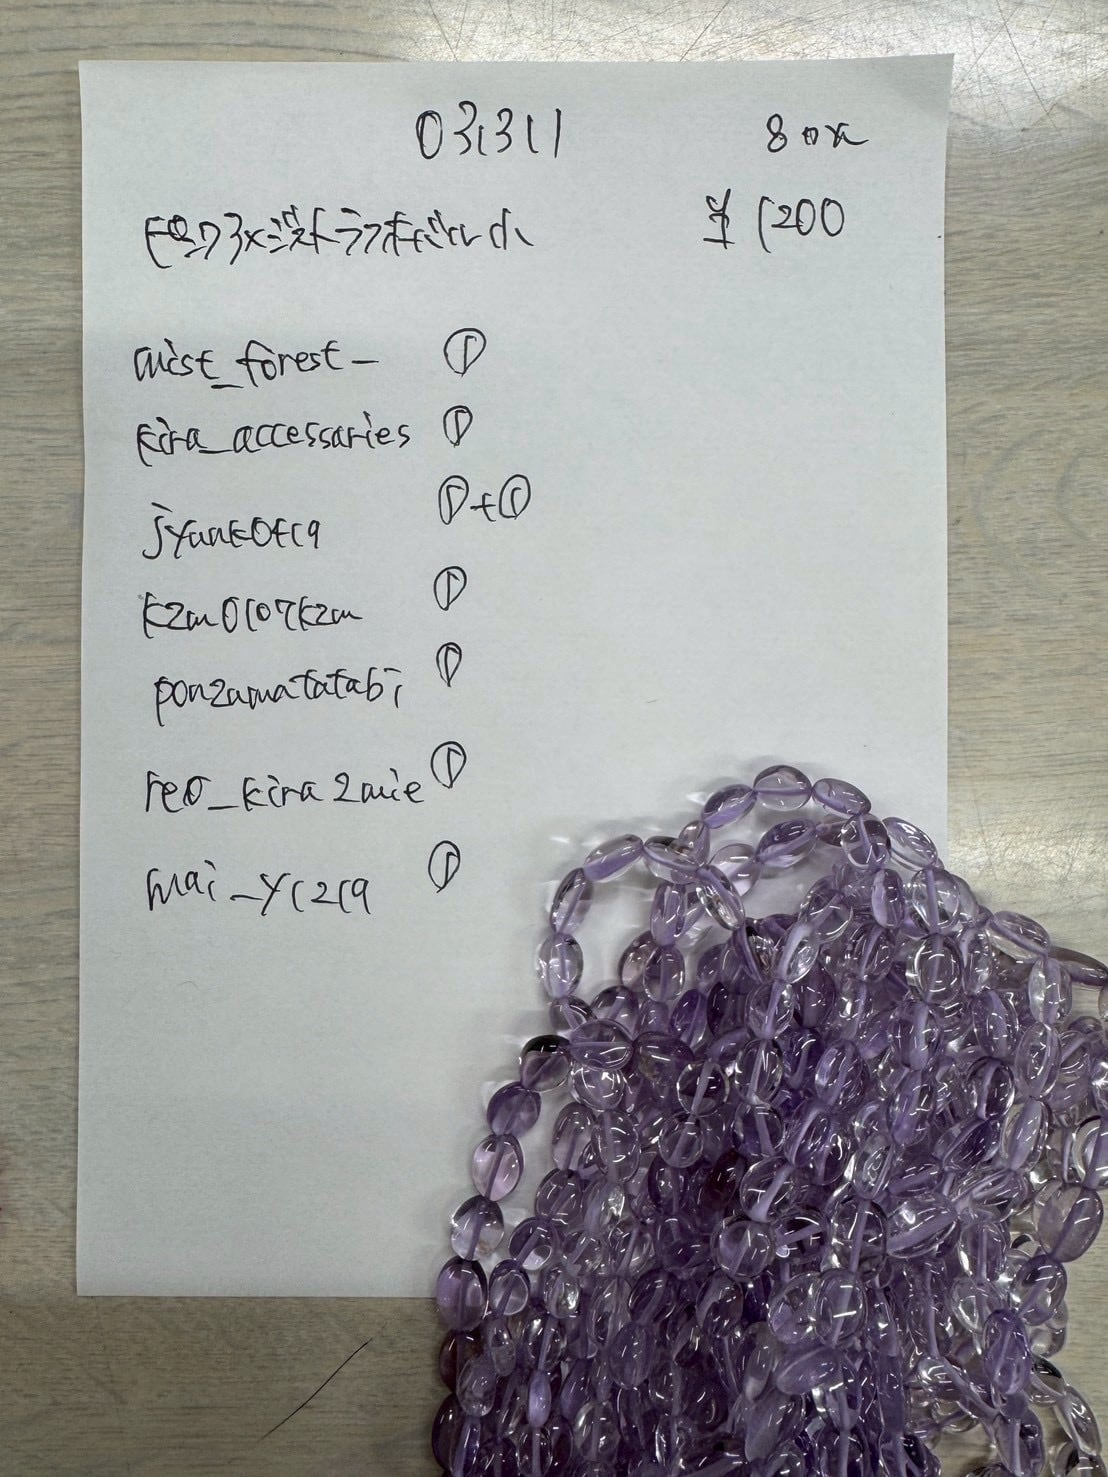 031311 80x
ピンクアメジストラフオーバル小 ¥1200
mist_forest_ ①
kira_accessaries ①
jyankotca ①+①
kzm0107kzm ①
ponzamatatabi ①
reo_kira2mie ①
mai_y1219 ①